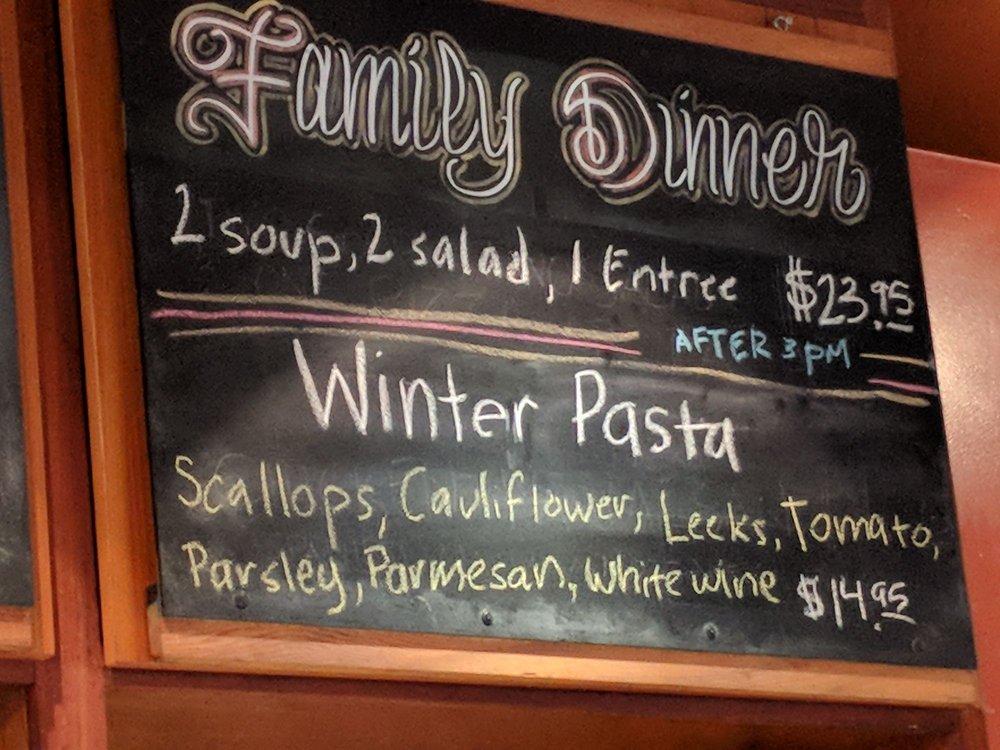 Family Dinner
2 soup, 2 salad, 1 Entree $23.95
AFTER 3 PM
Winter Pasta
Scallops, Cauliflower, Leeks, Tomato,
Parsley, Parmesan, White wine $14.95